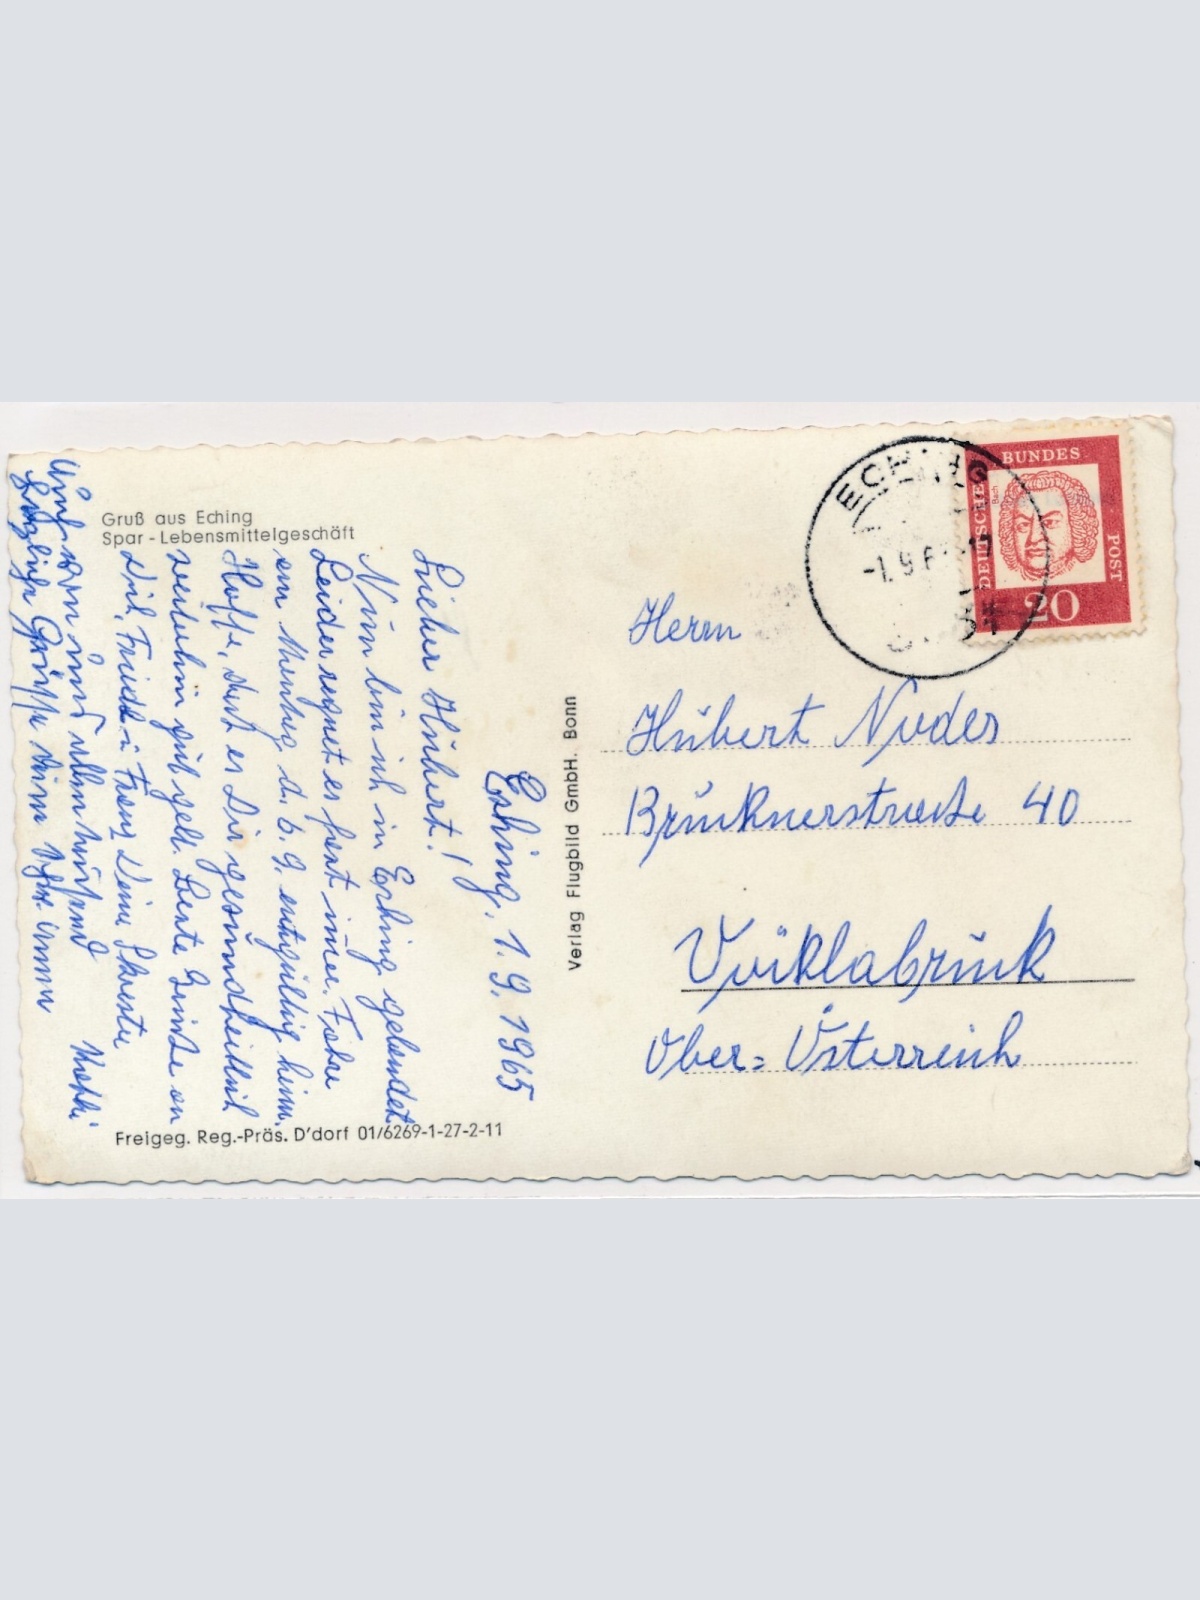 Gruß aus Eching
Spar - Lebensmittelgeschäft
Eching, 1. 9. 1965
Lieber Hubert!
Nun bin ich in Eching gelandet
Leider regnet es fast immer. Fahre
am Montag d. 6. 9. entgültig heim.
Hoffe, dass es Dir gesundheitlich
weiterhin gut geht. Beste Grüße an
Dich, Frieda u. Franz Deine Schwester
Auch von uns allen tausend
herzliche Grüße
Freigeg. Reg.-Präs. D'dorf 01/6269-1-27-2-11
Verlag Flugbild GmbH. Bonn
ECHING
-1. 9. 6
DEUTSCHE BUNDES POST
Bach
20
Herrn
Hubert Nuder
Brucknerstrasse 40
Vöcklabruck
Ober= Österreich